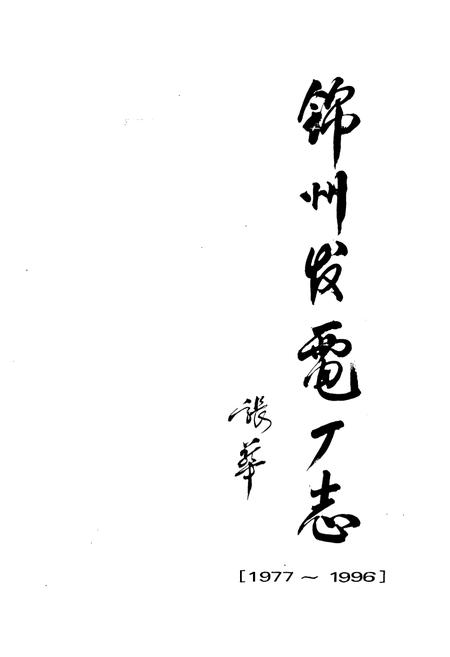 锦州发電厂志
張華
[1977～1996]